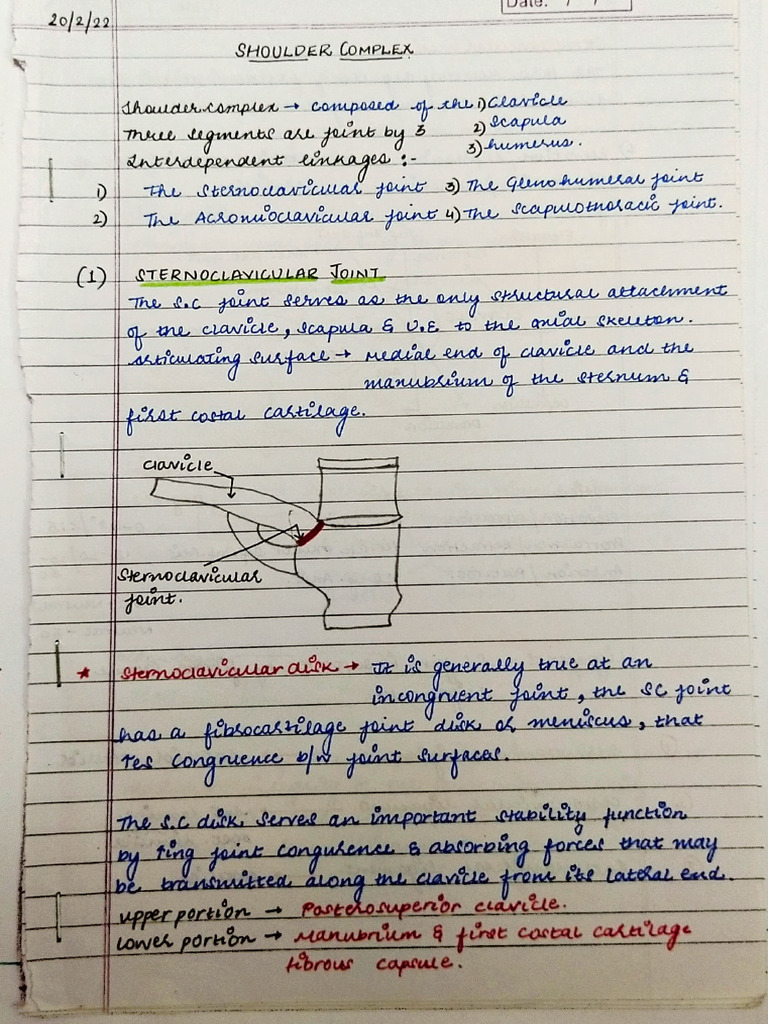 Date: / /
20/2/22
SHOULDER COMPLEX
Shoulder complex → composed of the 1) Clavicle
Three segments are joint by 3 2) Scapula
Interdependent linkages :- 3) humerus.
1) The Sternoclavicular joint 3) The Glenohumeral joint
2) The Acromioclavicular joint 4) The Scapulothoracic joint.
(1) STERNOCLAVICULAR JOINT
The S.C joint serves as the only structural attacement
of the clavicle, scapula & U.E to the axial skeleton.
Articulating surface → medial end of clavicle and the
manubrium of the sternum &
first costal cartilage.
clavicle
Sternoclavicular
joint.
* Sternoclavicular disk → It is generally true at an
incongruent joint, the SC joint
has a fibrocartilage joint disk or meniscus, that
↑es congruence b/w joint surfaces.
The S.C disk serves an important stability function
by ↑ing joint congurence & absorbing forces that may
be transmitted along the clavicle from its lateral end.
upper portion → Posterosuperior clavicle.
lower portion → Manubrium & first costal cartilage
fibrous capsule.